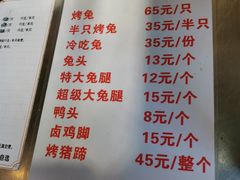 烤兔 65元/只
半只烤兔 35元/半只
冷吃兔 35元/份
兔头 13元/个
特大兔腿 12元/个
超级大兔腿 15元/个
鸭头 8元/个
卤鸡脚 15元/个
烤猪蹄 45元/整个